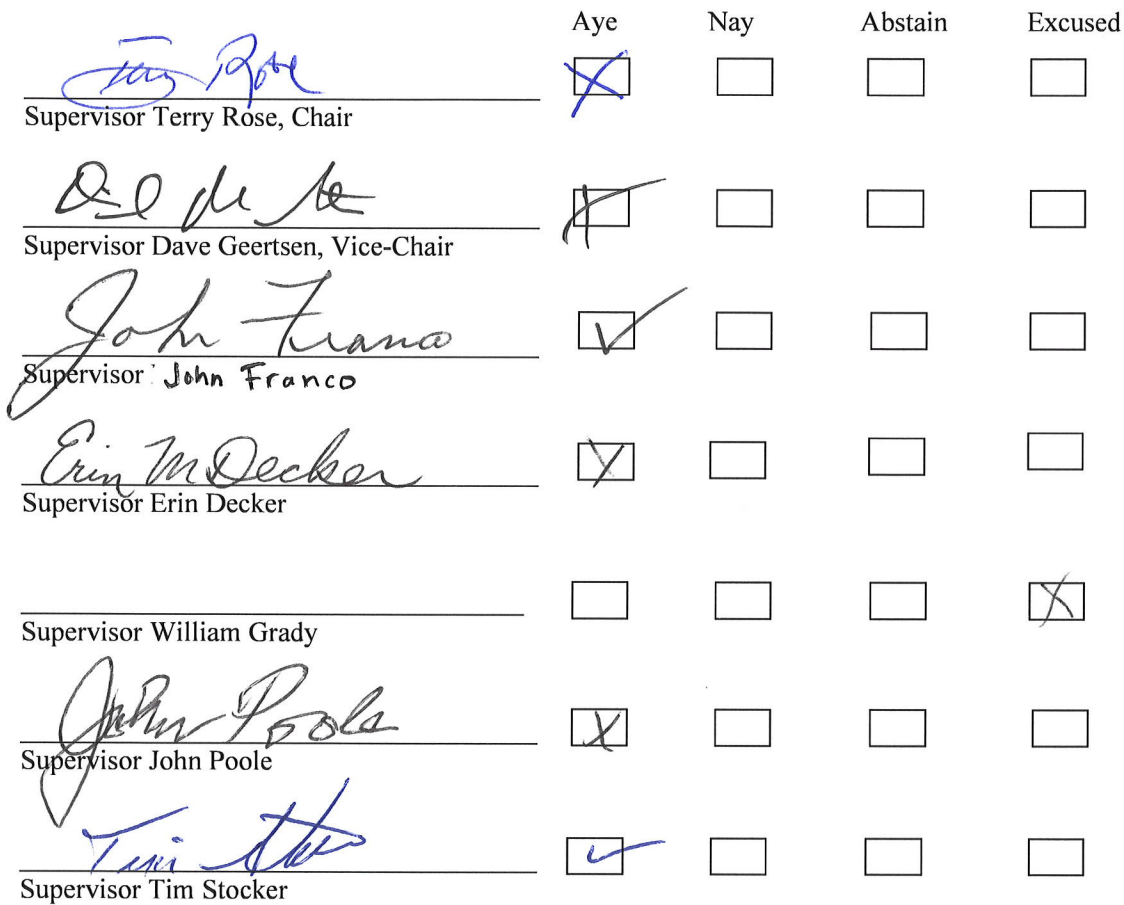 Aye Nay Abstain Excused
Terry Rose
Supervisor Terry Rose, Chair
Supervisor Dave Geertsen, Vice-Chair
John Franco
Supervisor John Franco
Erin M Decker
Supervisor Erin Decker
Supervisor William Grady
John Poole
Supervisor John Poole
Tim Stocker
Supervisor Tim Stocker